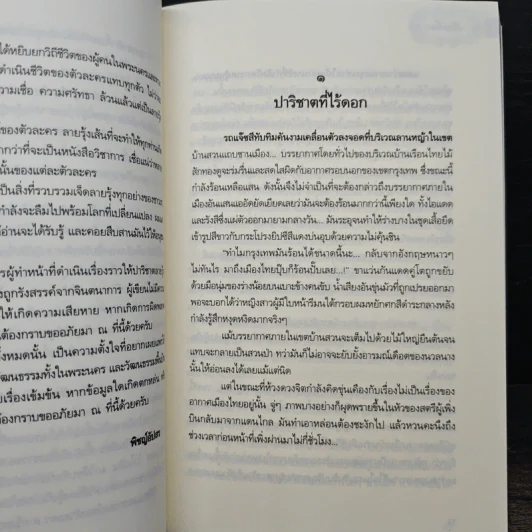 ได้หยิบยกวิถีชีวิตของผู้คนในพระนครและ
ดำเนินชีวิตของตัวละครแทบทุกตัว ไม่ว่า
วามเชื่อ ความศรัทธา ล้วนแล้วแต่เป็น
ของตัวละคร ลายรุ้งเส้นที่จะทำให้ทุกท่าน
ากกว่าที่จะเป็นหนังสือวิชาการ เชื่อแน่ว่า
นั้นของแต่ละตัวละคร
เป็นสิ่งที่รวบรวมเจ็ดลายรุ้งทุกอย่างของ
กำลังจะลืมไปพร้อมโลกที่เปลี่ยนแปลง
ผู้อ่านจะได้รับรู้ และคอยสืบสานมันไว้ให้
รผู้ทำหน้าที่ดำเนินเรื่องราวให้ปาริชาต
ถูกรังสรรค์จากจินตนาการ ผู้เขียนไม่
ให้เกิดความเสียหาย หากเกิดการผิด
ต้องกราบขออภัยมา ณ ที่นี้ด้วยครับ
ทั้งหมดนั้น เป็นความตั้งใจที่อยากเผยแพร่
วัฒนธรรมทั้งในพระนคร และวัฒนธรรม
ยเรื่องเข้มข้น หากข้อมูลใดเกิดตกหล่น
ต้องกราบขออภัยมา ณ ที่นี้ด้วยครับ
พิชญ์อัปสร
๑
ปาริชาตที่ไร้ดอก
รถแจ๊ซสีทับทิมคันงามเคลื่อนตัวลงจอดที่บริเวณลานหญ้าในเขต
บ้านสวนแถบชานเมือง... บรรยากาศโดยทั่วไปของบริเวณบ้านเรือนไทยไม้
สักทองดูจะร่มรื่นและสดใสผิดกับอากาศรอบนอกของเขตกรุงเทพ ซึ่งขณะนี้
กำลังร้อนเหลือแสน ดังนั้นจึงไม่จำเป็นที่จะต้องกล่าวถึงบรรยากาศภายใน
เมืองอันแสนแออัดยัดเยียดเลยว่ามันจะต้องร้อนมากกว่านี้เพียงใด ทั้งไอแดด
และรังสีซึ่งแผ่ตัวออกมายามกลางวัน... มันระอุจนทำให้ร่างบางในชุดเสื้อยืด
เข้ารูปสีขาวกับกระโปรงยิปซีสีแดงปนอุบด้วยความไม่คุ้นชิน
“ทำไมกรุงเทพมันร้อนได้ขนาดนี้นะ... กลับจากอังกฤษหนาวๆ
ไม่ทันไร มาถึงเมืองไทยปุ๊บก็ร้อนปั๊บเลย...!” ขาแว่นกันแดดคู่โตถูกขยับ
ด้วยมือนุ่มของร่างน้อยบนเบาะข้างคนขับ น้ำเสียงอันขุ่นมัวที่ถูกเปรยออกมา
พอจะบอกได้ว่าหญิงสาวผู้มีใบหน้ารีมนใต้กรอบผมหยักศกสีดำระกลางหลัง
กำลังรู้สึกหงุดหงิดมากจริงๆ
แม้บรรยากาศภายในเขตบ้านสวนจะเต็มไปด้วยไม้ใหญ่ยืนต้นจน
แทบจะกลายเป็นสวนป่า ทว่ามันก็ไม่อาจจะขยับยั้งอารมณ์เดือดของนวลนาง
นั้นให้อ่อนลงได้เลยแม้แต่นิด
แต่ในขณะที่ห้วงดวงจิตกำลังคิดขุ่นเคืองกับเรื่องไม่เป็นเรื่องของ
อากาศเมืองไทยอยู่นั้น จู่ๆ ภาพบางอย่างก็ผุดพรายขึ้นในหัวของสตรีผู้เพิ่ง
บินกลับมาจากแดนไกล มันทำเอาหล่อนต้องชะงักไป แล้วหวนคะนึงถึง
ช่วงเวลาก่อนหน้าที่เพิ่งผ่านมาไม่กี่ชั่วโมง...